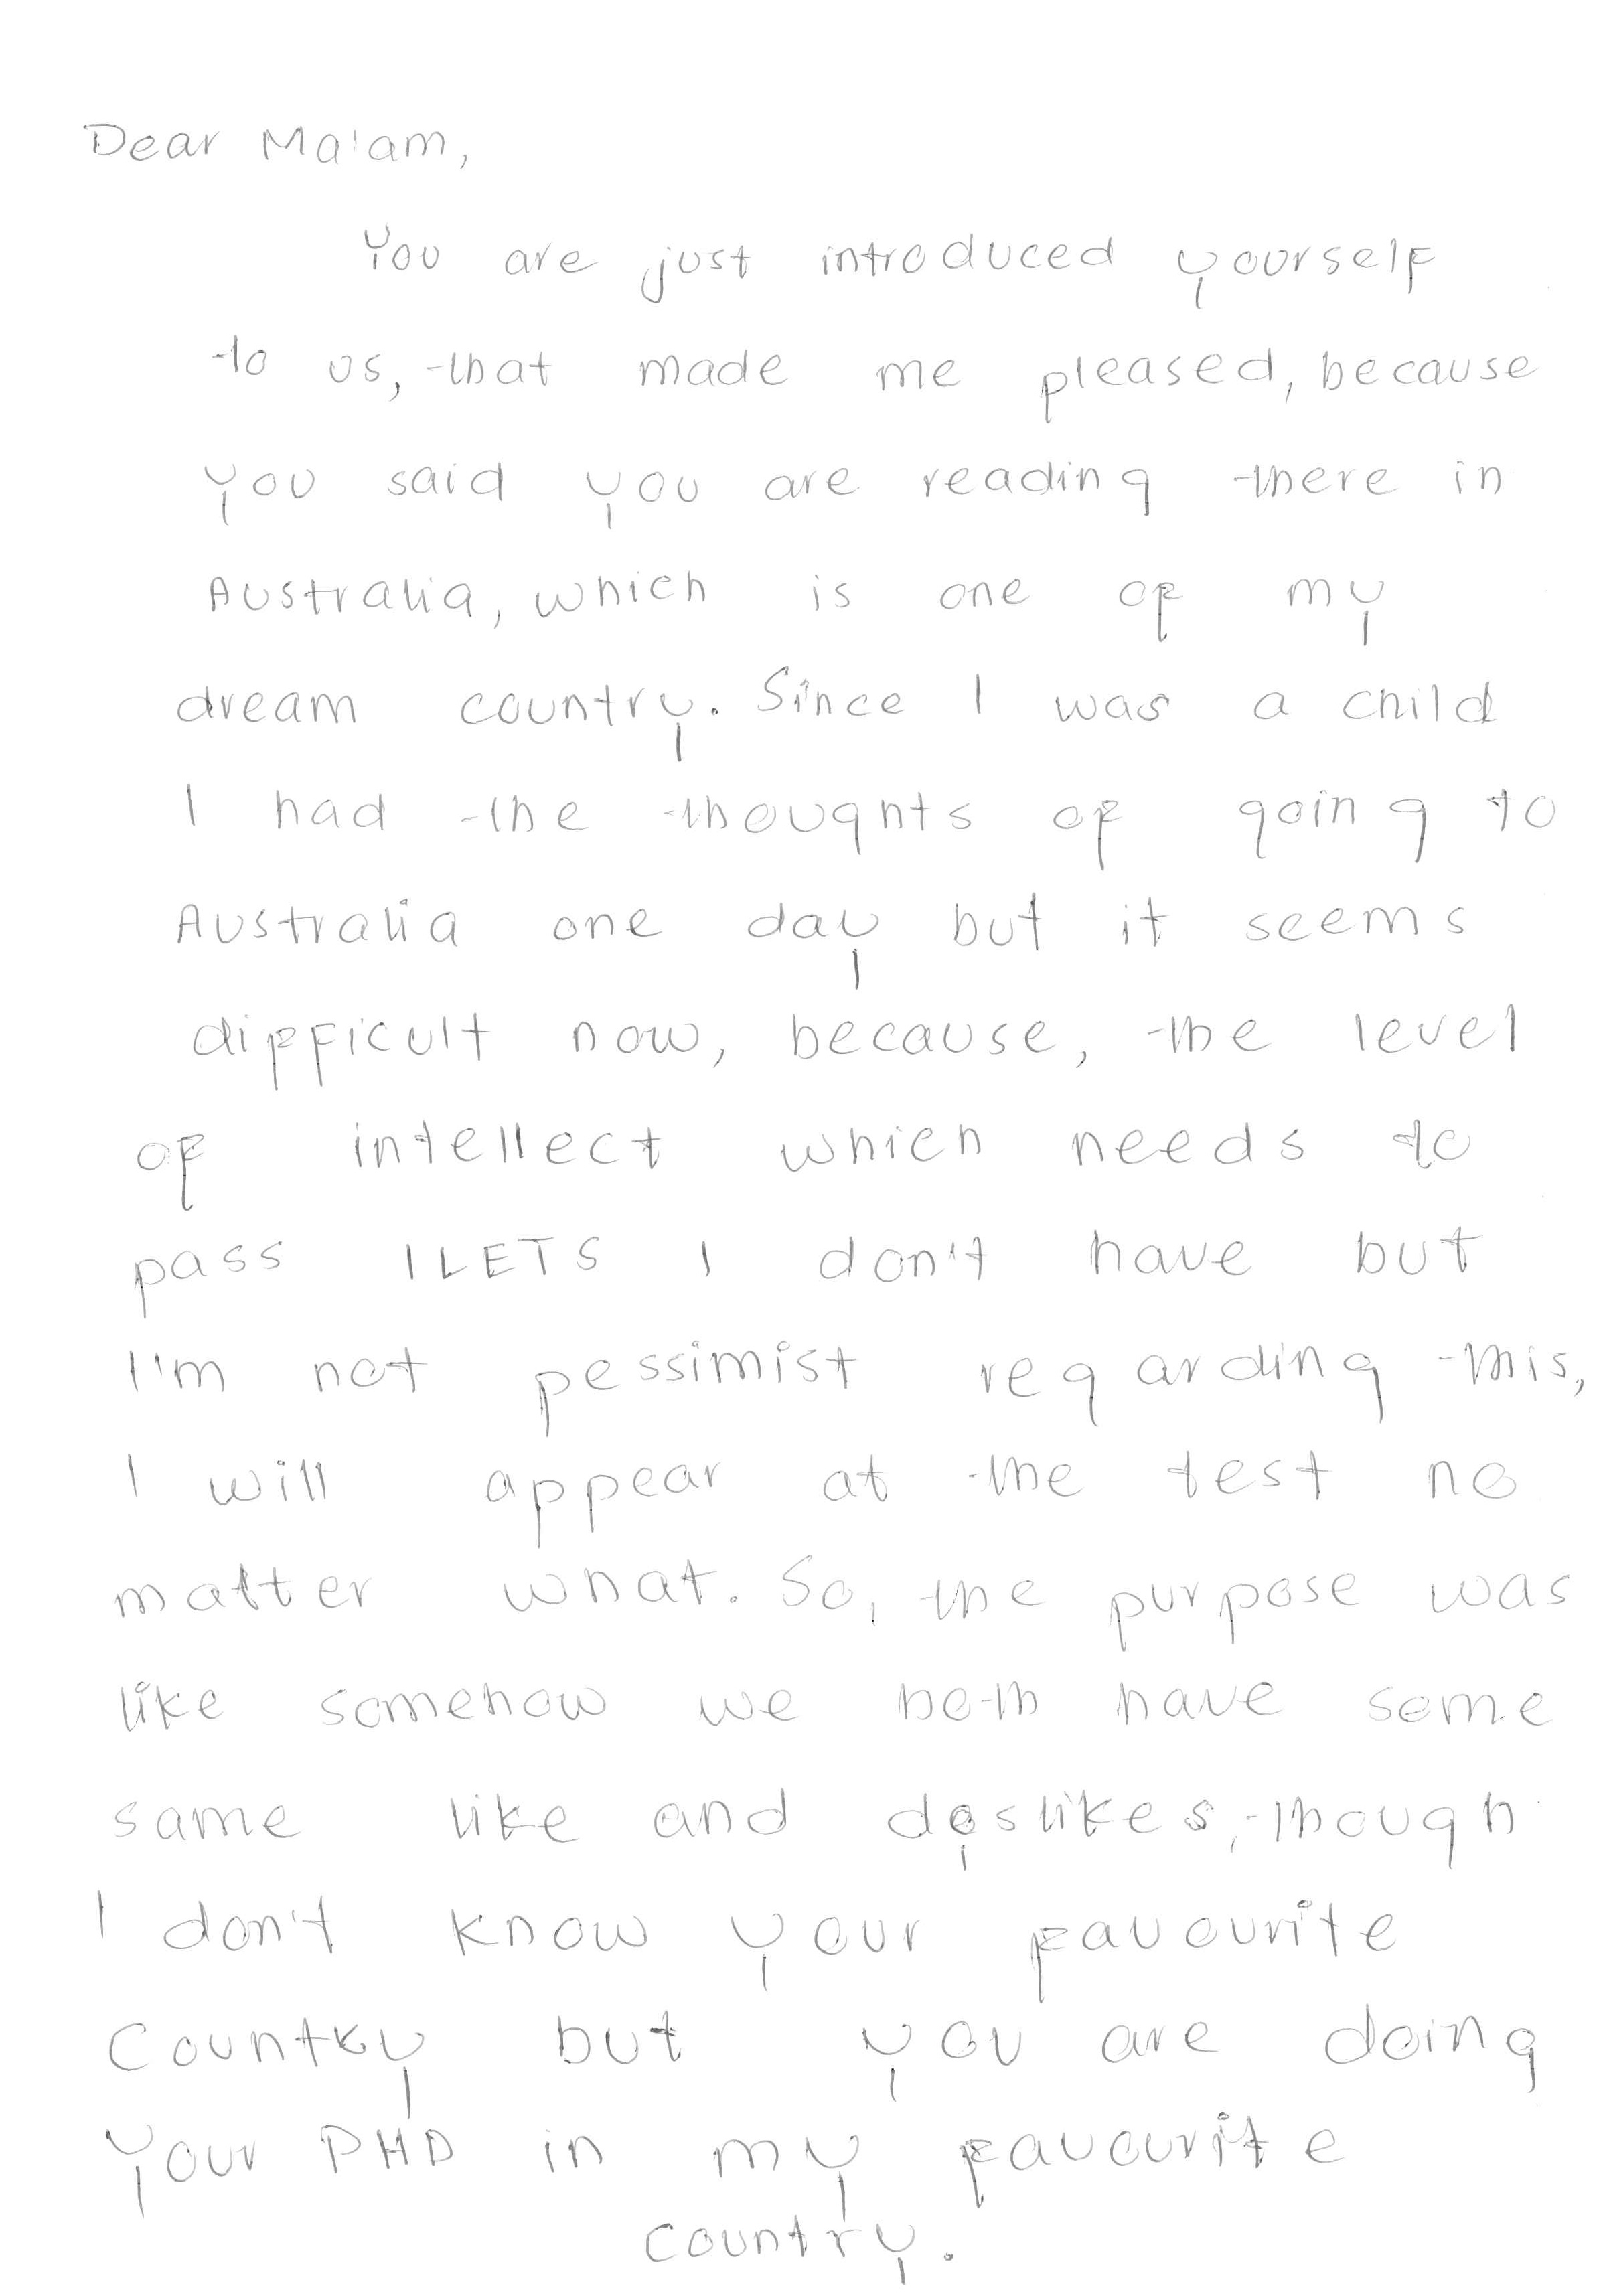 Dear Ma'am,
You are just introduced yourself
to us, that made me pleased, because
you said you are reading there in
Australia, which is one of my
dream country. Since I was a child
I had the thoughts of going to
Australia one day but it seems
difficult now, because, the level
of intellect which needs to
pass ILETS I don't have but
I'm not pessimist regarding this,
I will appear at the test no
matter what. So, the purpose was
like somehow we both have some
same like and deslikes, though
I don't know your favourite
Country but you are doing
your PHD in my favourite
country.